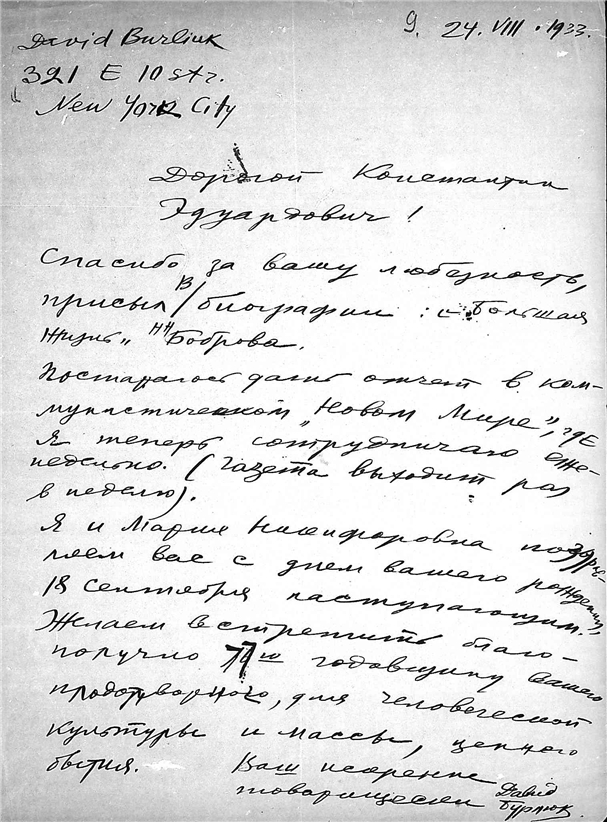 9. 24. VIII. 1933.
David Burliuk
321 E 10 str.
New York City
Дорогой Константин
Эдуардович!
Спасибо за вашу любезность,
присыл В/биографии: „Большая
жизнь„ НН Боброва.
Постараюсь дать отчет в ком-
мунистической „Новом Мире”, где
я теперь сотрудничаю еже-
недельно. (Газета выходит раз
в неделю).
Я и Мария Никифоровна поздрав-
ляем вас с днем вашего рождения,
18 сентября наступающим.
Желаем встретить благо-
получно 77ю годовщину вашего
плодотворного, для человеческой
культуры и массы, ценного
бытия. Ваш искренне
товарищески David
Бурлюк